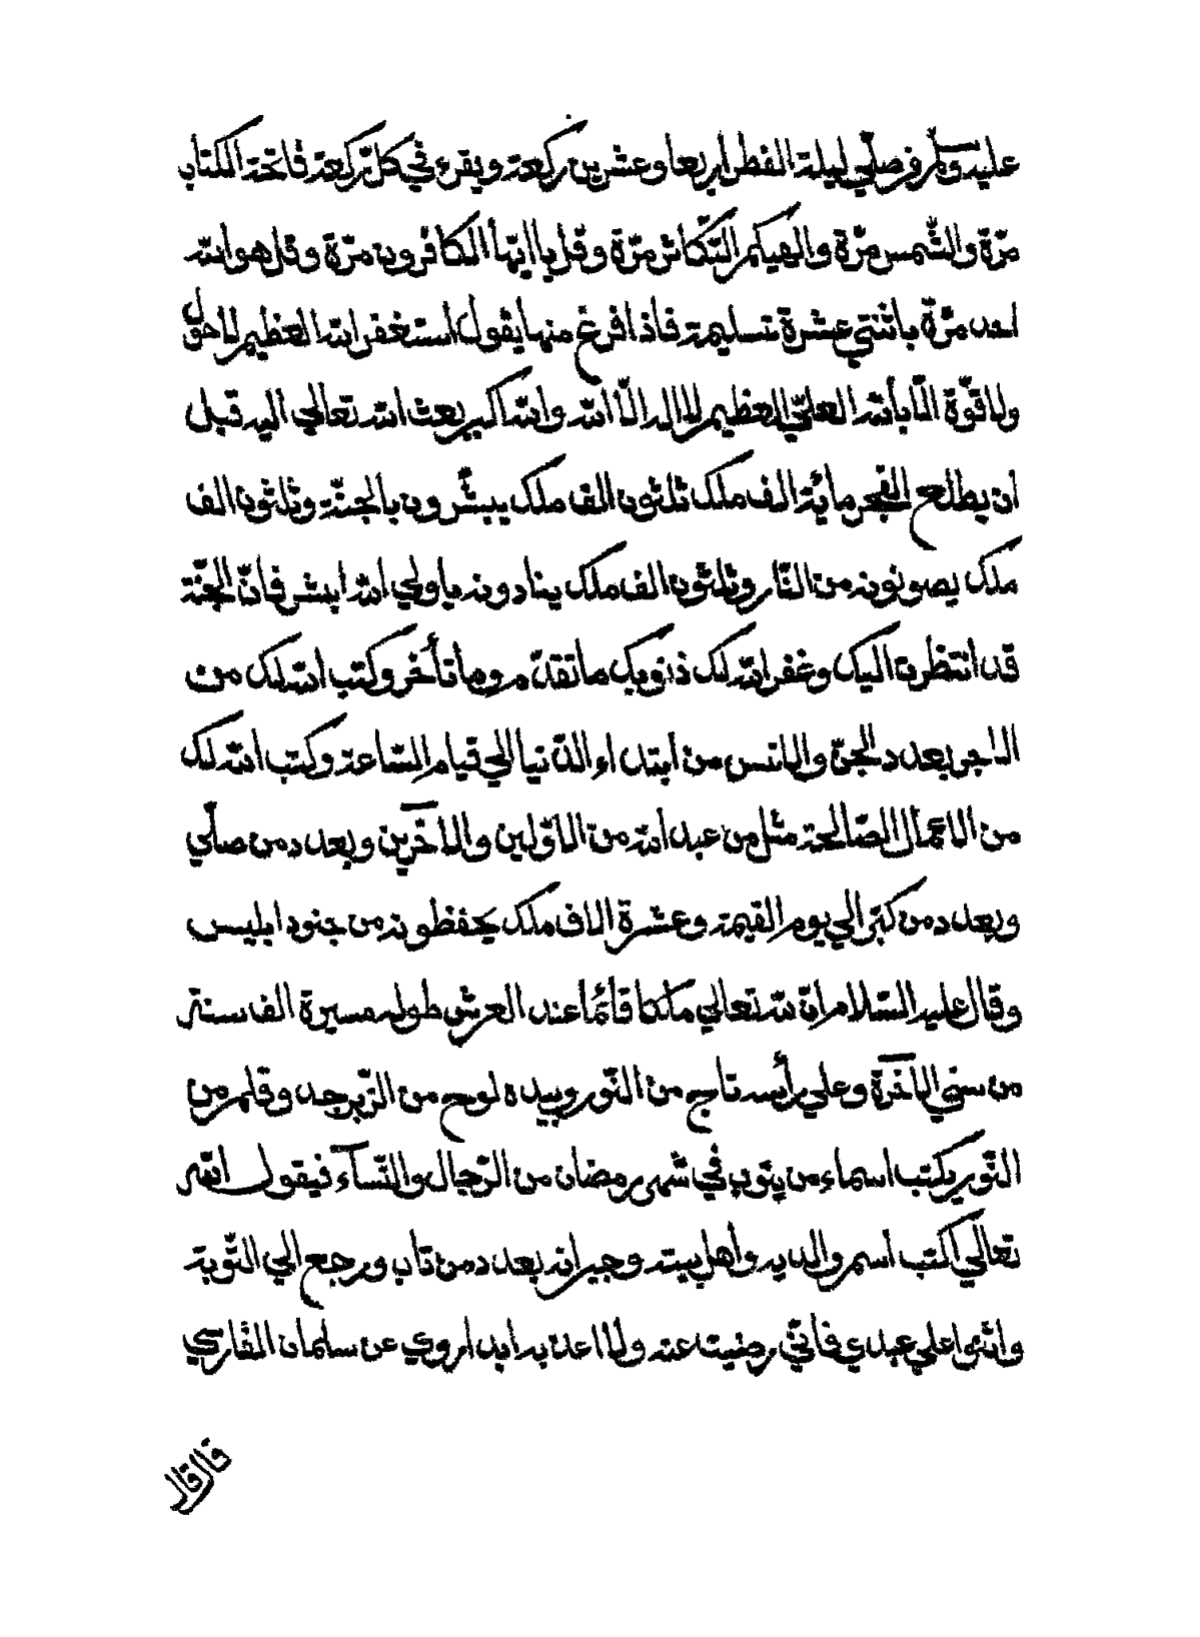 عليه وسلم من صلّي ليلة الفطر أربعا وعشرين ركعة ويقرء في كلّ ركعة فاتحة الكتاب
مرّة والشّمس مرّة والهيكم التّكاثر مرّة وقل ياايّها الكافرون مرّة وقل هو الله
احد مرّة باثنتي عشرة تسليمة فاذا فرغ منها يقول استغفر الله العظيم لا حول
ولا قوّة الّا بالله العليّ العظيم لا اله الّا الله والله اكبر بعث الله تعالي اليه قبل
ان يطلع الفجر مائة الف ملك ثلثون الف ملك يبشّرون بالجنّة وثلثون الف
ملك يصونونه من النّار وثلثون الف ملك ينادونه ياولي الله ابشر فانّ الجنّة
قد انتظرت اليك وغفر الله لك ذنوبك ما تقدّم وما تأخّر وكتب الله لك من
الاجر بعدد الجنّ والانس من ابتداء الدّنيا الي قيام السّاعة وكتب الله لك
من الاعمال الصّالحة مثل من عبد الله من الاوّلين والآخرين وبعدد من صلّي
وبعدد من كبّر الي يوم القيمة وعشرة الاف ملك يحفظونه من جنود ابليس
وقال عليه السّلام انّ لله تعالي ملكا قائما عند العرش طوله مسيرة الف سنة
من سني الآخرة وعلي رأسه تاج من النّور وبيده لوح من الزّبرجد وقلم من
النّور يكتب اسماء من يتوب في شهر رمضان من الرّجال والنّسآء فيقول الله
تعالي اكتب اسم والديه وأهل بيته وجيرانه بعدد من تاب ورجع الي التّوبة
واثنوا علي عبدي فانّي رضيت عنه ولا اعذبه ابدا روي عن سلمان الفارسي
قال قال